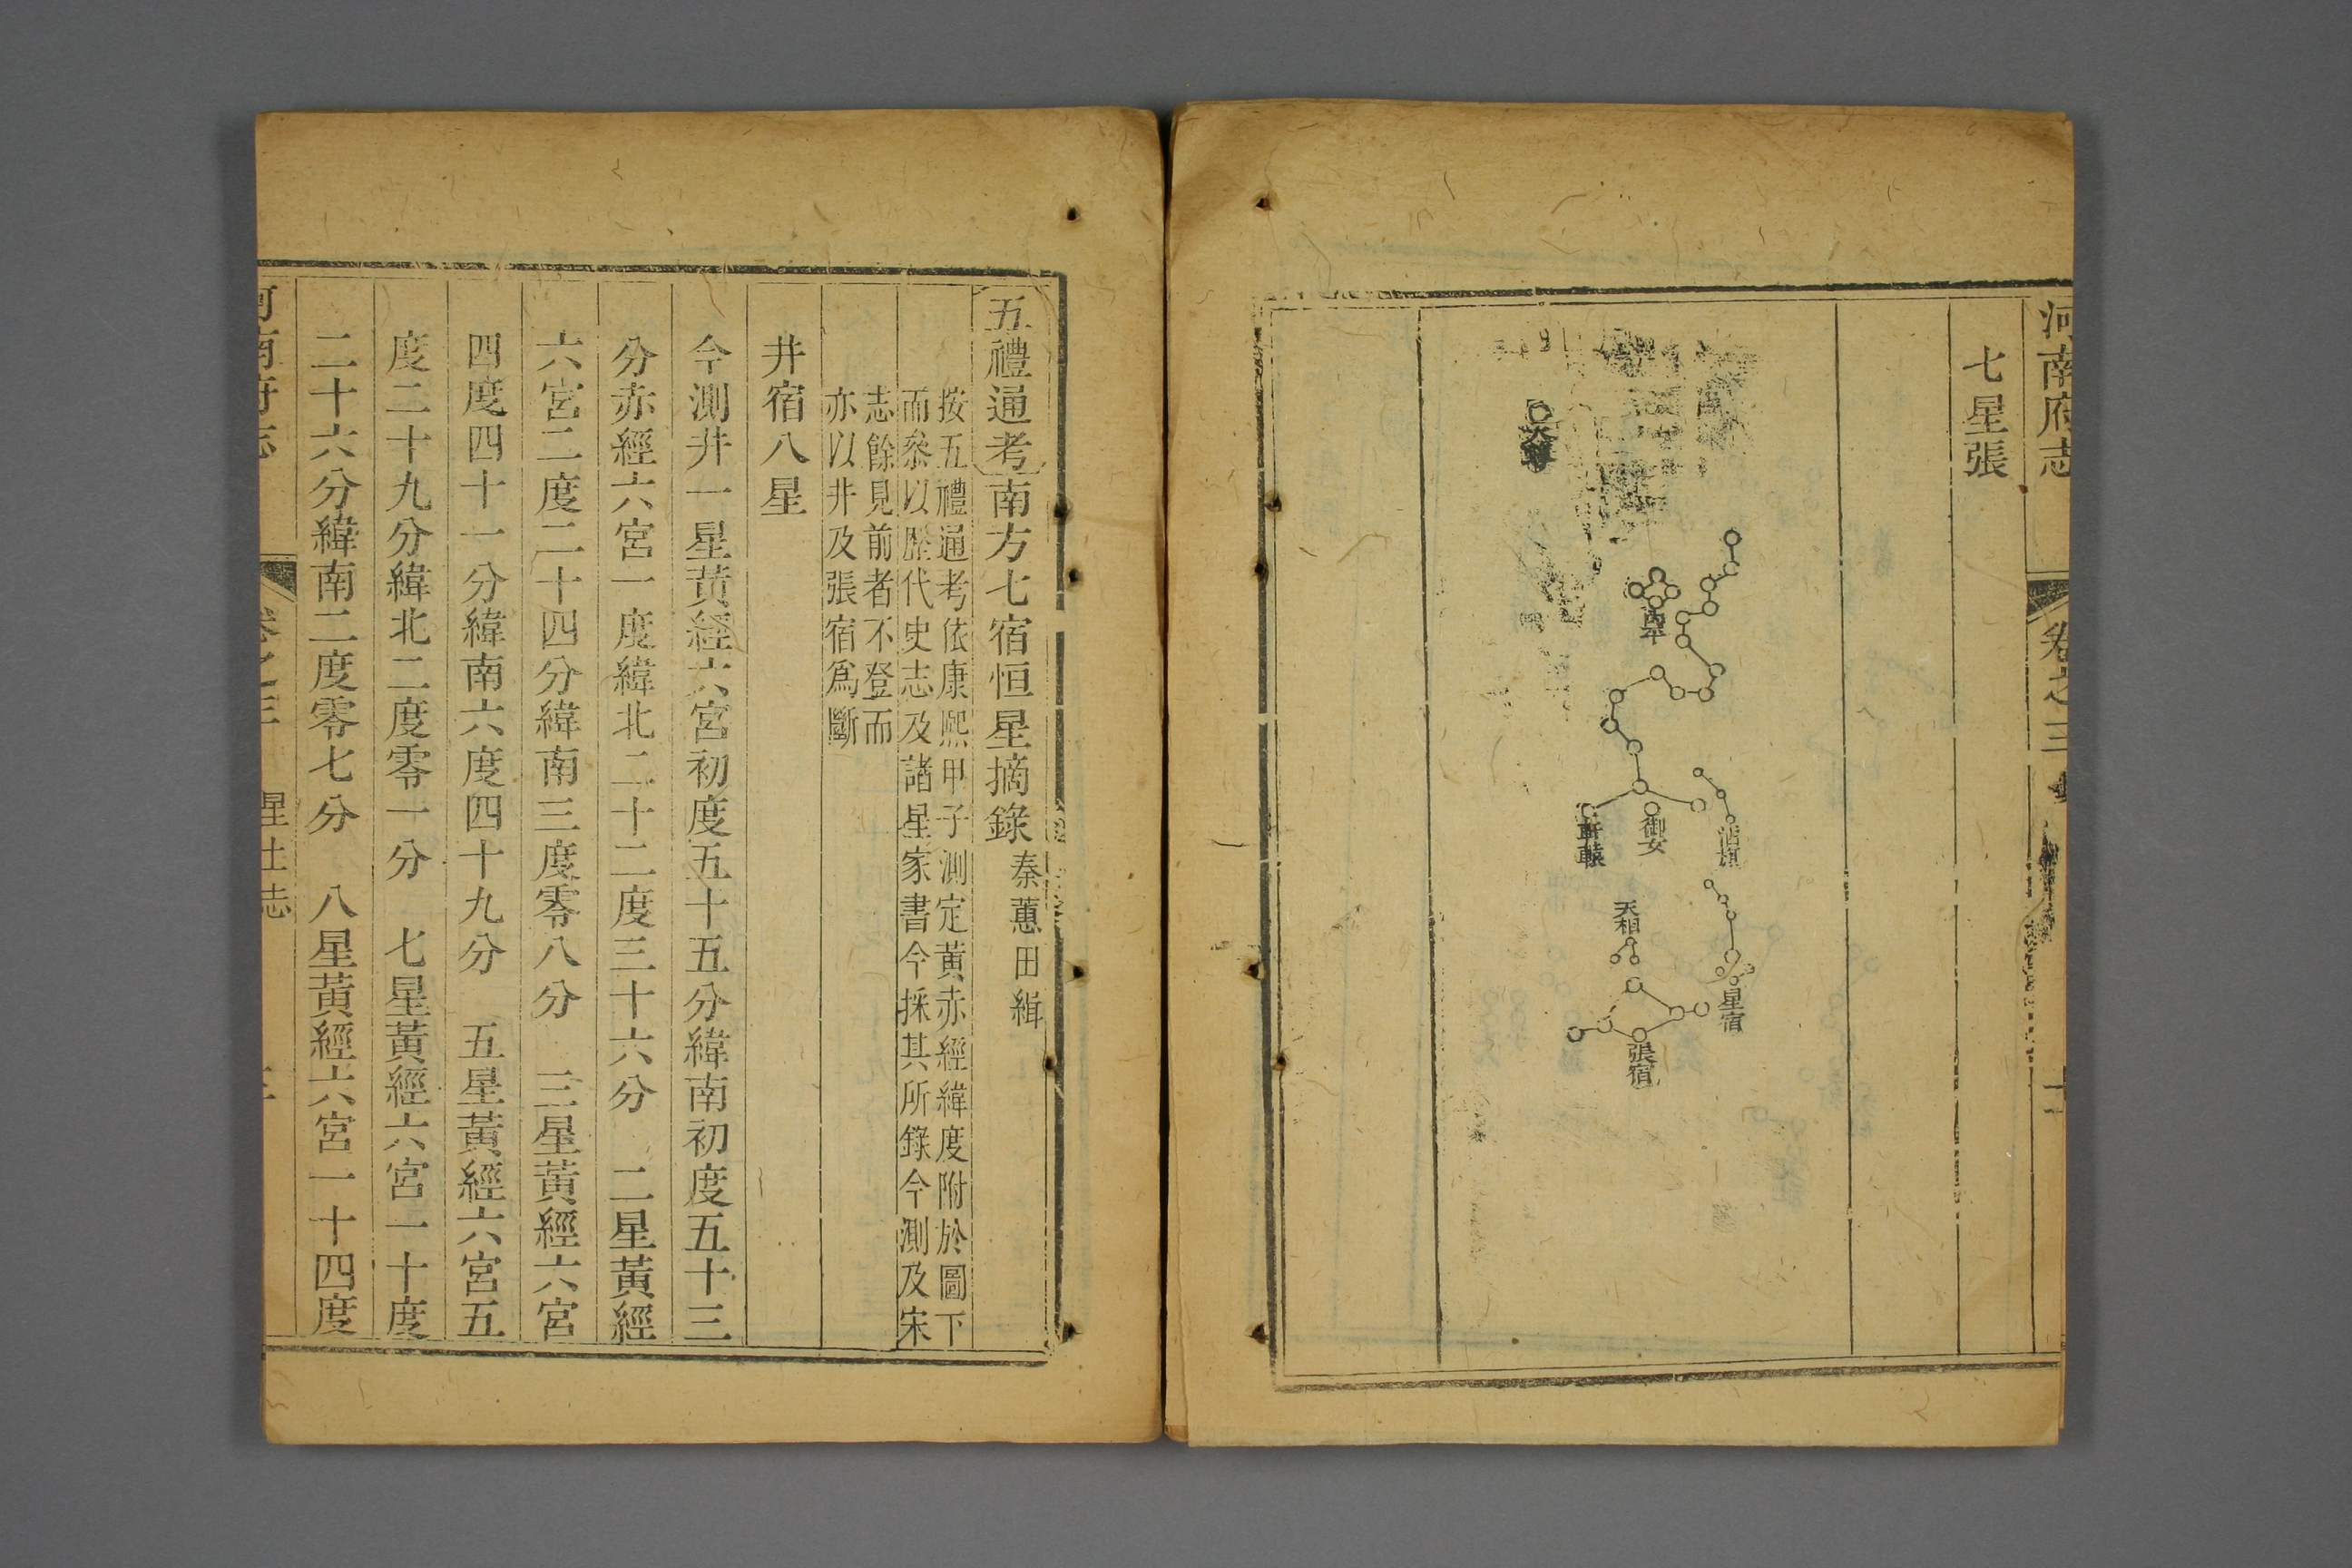 河南府志
卷之三
七星張
內平
軒轅
御女
酒旗
天相
星宿
張宿
五禮通考南方七宿恒星摘錄秦蕙田緝
按五禮通考依康熙甲子測定黃赤經緯度附於圖下
而叅以歷代史志及諸星家書今採其所錄今測及宋
志餘見前者不登而
亦以井及張宿爲斷
井宿八星
今測井一星黃經六宮初度五十五分緯南初度五十三
分赤經六宮一度緯北二十二度三十六分 二星黃經
六宮二度二十四分緯南三度零八分 三星黃經六宮
四度四十一分緯南六度四十九分 五星黃經六宮五
度二十九分緯北二度零一分 七星黃經六宮一十度
二十六分緯南二度零七分 八星黃經六宮一十四度
河南府志
卷之三 星土志